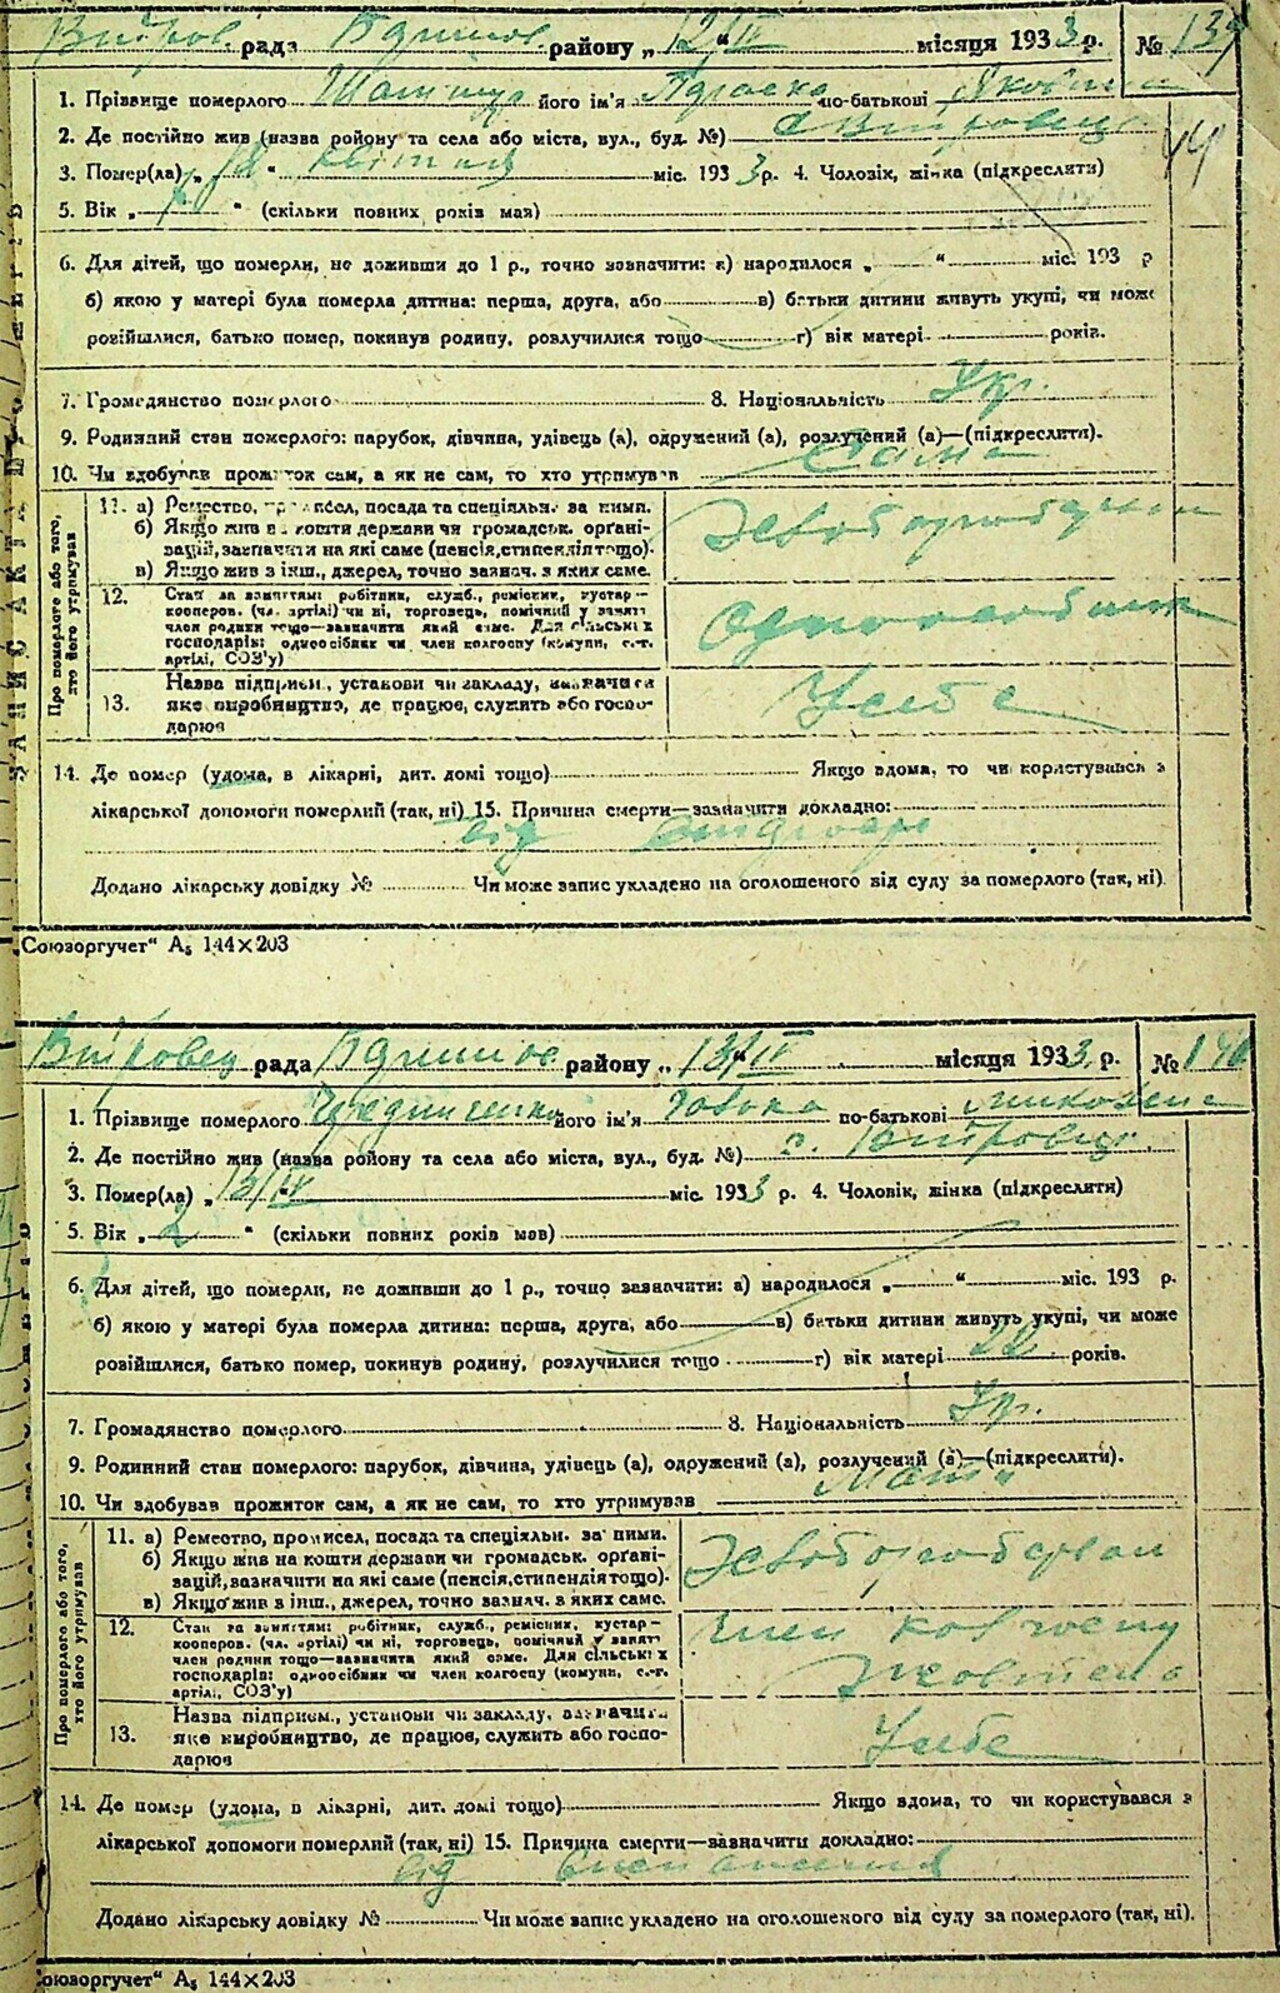 рада районну „12“ IV місяця 1933 р. № 139
1. Прізвище померлого його ім'я по-батькові
2. Де постійно жив (назва ройону та села або міста, вул., буд. №)
3. Помер(ла) „ “ квітня міс. 1933 р. 4. Чоловік, жінка (підкреслити)
5. Вік „ “ (скільки повних років мав)
6. Для дітей, що померли, не доживши до 1 р., точно зазначити: а) народилося „ “ міс. 193 р
б) якою у матері була померла дитина: перша, друга, або в) батьки дитини живуть укупі, чи може
розійшлися, батько помер, покинув родину, розлучилися тощо г) вік матері років.
7. Громадянство померлого 8. Національність Укр.
9. Родинний стан померлого: парубок, дівчина, удівець (а), одружений (а), розлучений (а)—(підкреслити).
10. Чи здобував прожиток сам, а як не сам, то хто утримував Сама
Про померлого або того, хто його утримував
11. а) Ремество, промисел, посада та спеціяльн. за ними.
б) Якщо жив на кошти держави чи громадськ. орґані-
зацій, зазначити на які саме (пенсія, стипендія тощо).
в) Якщо жив з інш., джерел, точно зазнач. з яких саме.
Хлібороб
12. Стан за заняттям: робітник, служб., ремісник, кустар—
кооперов. (чл. артілі) чи ні, торговець, помічний у занят.
член родини тощо—зазначити який саме. Для сільськіх
господарів: одноосібник чи член колгоспу (комуни, с.-г.
артілі, СОЗ'у)
Одноосібник
13. Назва підприєм., установи чи закладу, зазначити
яке виробництво, де працює, служить або госпо-
дарює
У себе
14. Де помер (удома, в лікарні, дит. домі тощо) Якщо вдома, то чи користувався з
лікарської допомоги померлий (так, ні) 15. Причина смерти—зазначити докладно:
від
Додано лікарську довідку № Чи може запис укладено на оголошеного від суду за померлого (так, ні).
„Союзоргучет“ А₅ 144×203
рада району „13“ IV місяця 1933 р. № 140
1. Прізвище померлого його ім'я по-батькові
2. Де постійно жив (назва ройону та села або міста, вул., буд. №) с.
3. Помер(ла) „13/IV“ міс. 1933 р. 4. Чоловік, жінка (підкреслити)
5. Вік „2“ (скільки повних років мав)
6. Для дітей, що померли, не доживши до 1 р., точно зазначити: а) народилося „ “ міс. 193 р.
б) якою у матері була померла дитина: перша, друга, або в) батьки дитини живуть укупі, чи може
розійшлися, батько помер, покинув родину, розлучилися тощо г) вік матері 22 років.
7. Громадянство померлого 8. Національність Укр.
9. Родинний стан померлого: парубок, дівчина, удівець (а), одружений (а), розлучений (а)—(підкреслити).
10. Чи здобував прожиток сам, а як не сам, то хто утримував Мати
Про померлого або того, хто його утримував
11. а) Ремество, промисел, посада та спеціяльн. за ними.
б) Якщо жив на кошти держави чи громадськ. орґані-
зацій, зазначити на які саме (пенсія, стипендія тощо).
в) Якщо жив з інш., джерел, точно зазнач. з яких саме.
Хлібороб
12. Стан за заняттям: робітник, служб., ремісник, кустар—
кооперов. (чл. артілі) чи ні, торговець, помічний у занят.
член родини тощо—зазначити який саме. Для сільськіх
господарів: одноосібник чи член колгоспу (комуни, с.-г.
артілі, СОЗ'у)
Член
13. Назва підприєм., установи чи закладу, зазначити
яке виробництво, де працює, служить або госпо-
дарює
У себе
14. Де помер (удома, в лікарні, дит. домі тощо) Якщо вдома, то чи користувався з
лікарської допомоги померлий (так, ні) 15. Причина смерти—зазначити докладно:
від
Додано лікарську довідку № Чи може запис укладено на оголошеного від суду за померлого (так, ні).
оюзоргучет“ А₅ 144×203